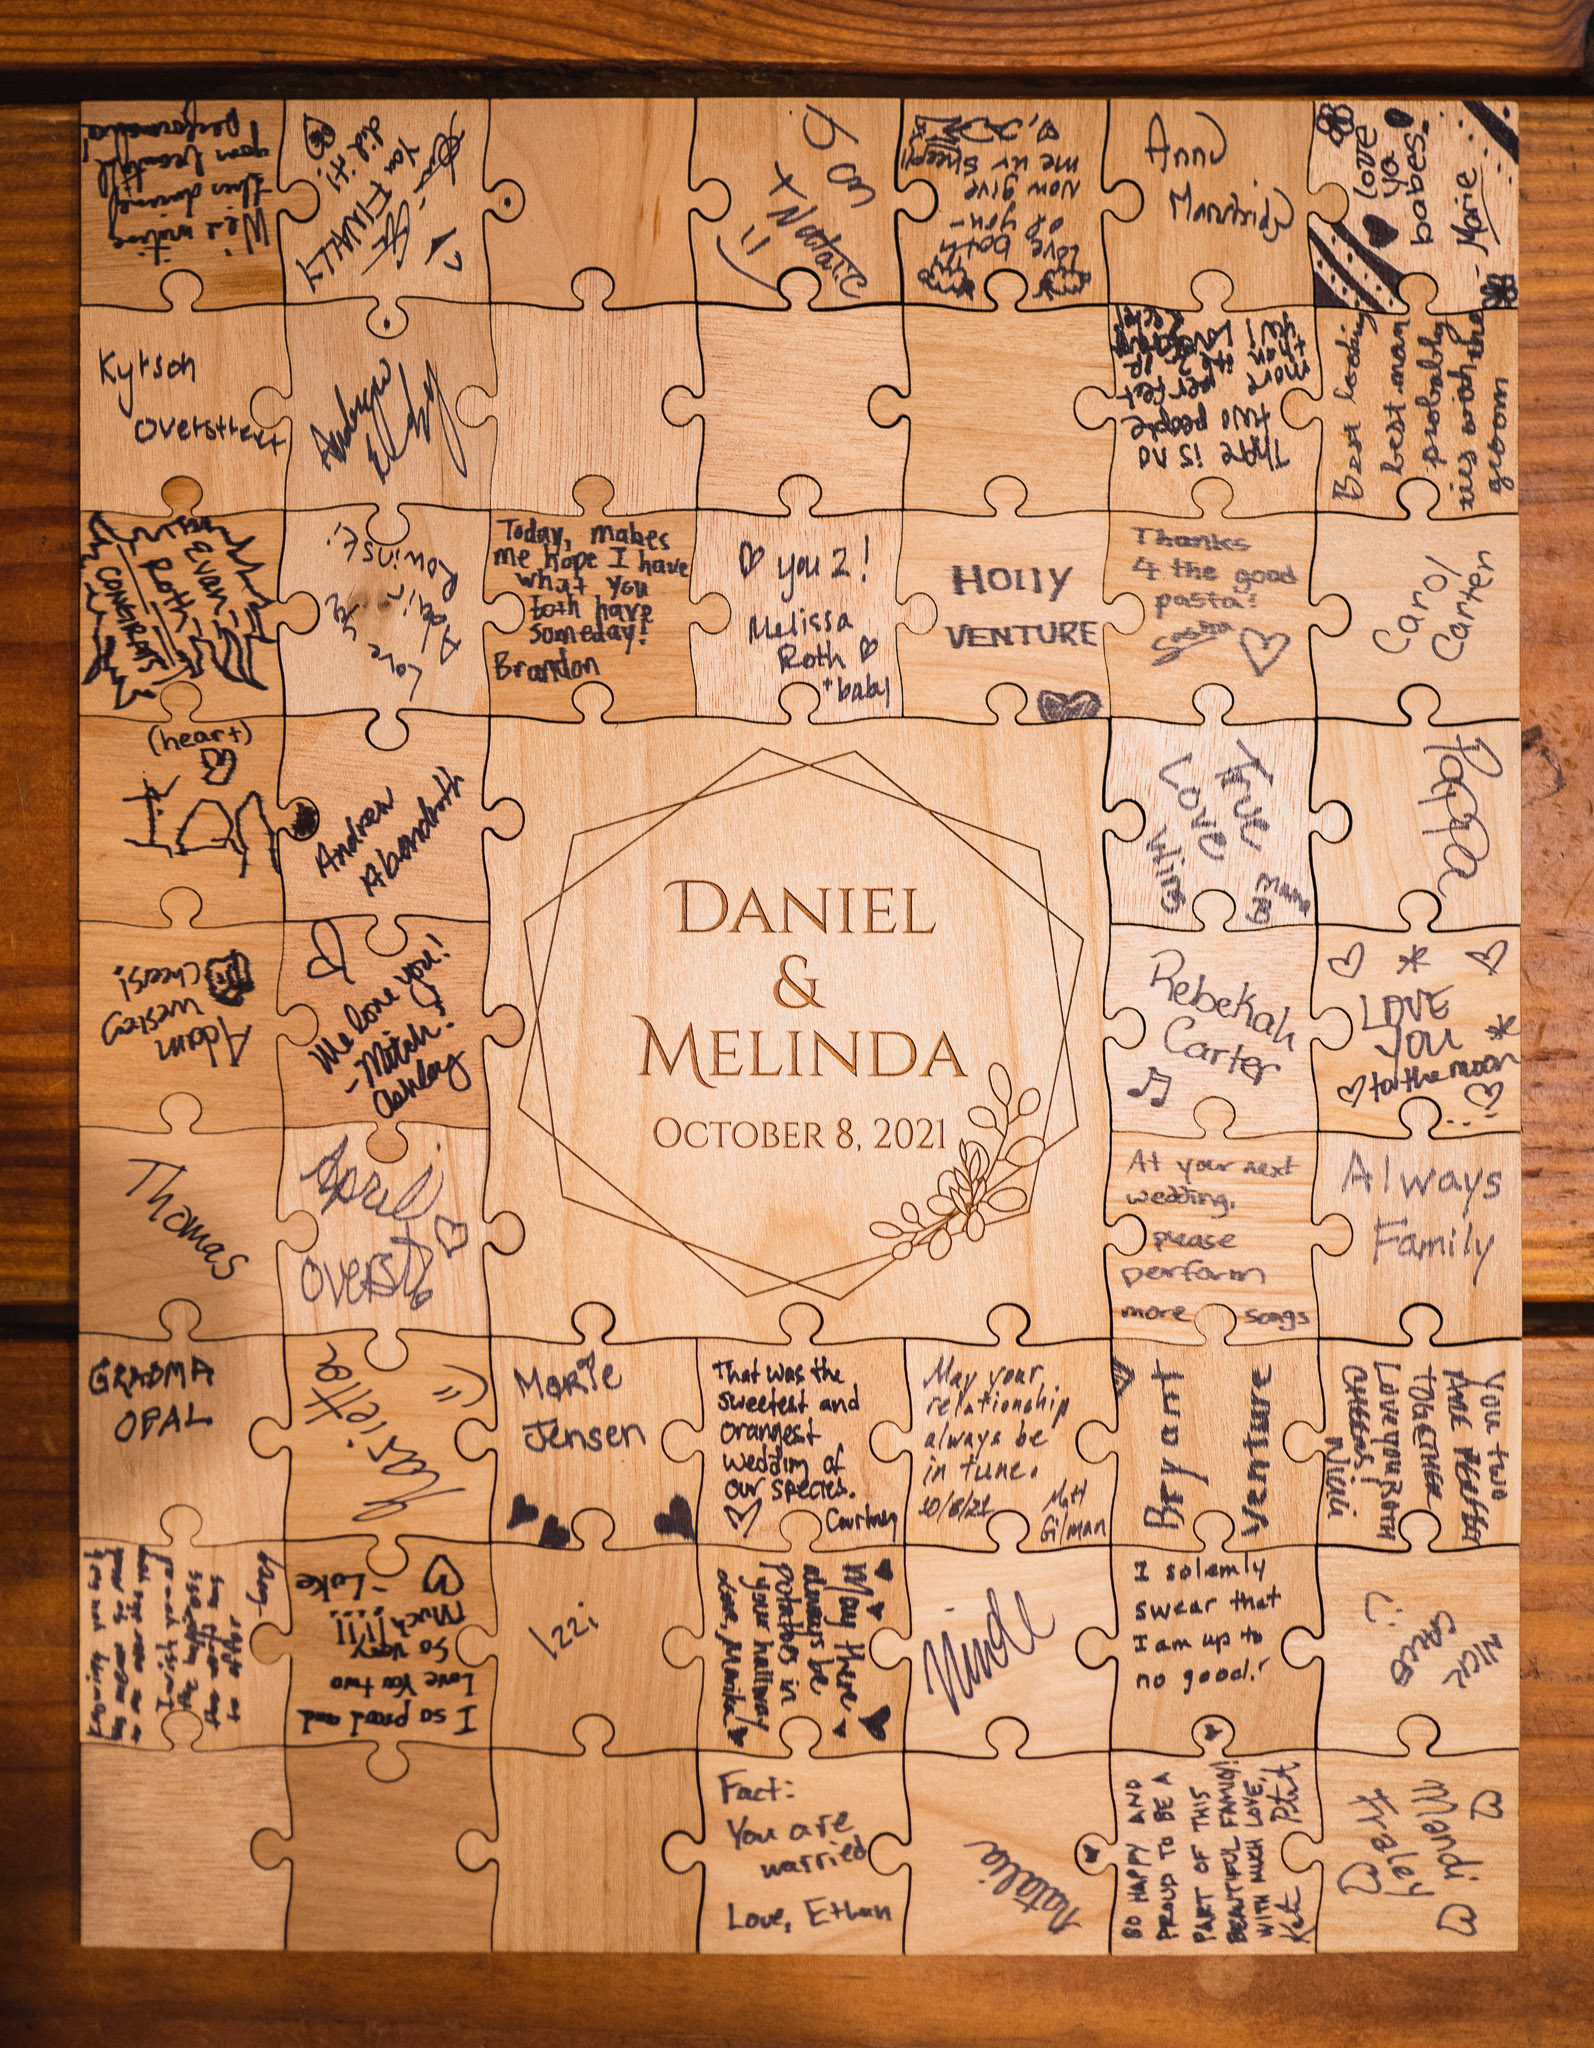 We're writing
this during
your beautiful
performance!
You FINALLY
did it!
+ Natalie
Love both
of you-
Now give
me ur sheep!!
Anna
love
ya
babes.
- Marie
Kytson
Overstreet
There is no
two people
more perfect
than
you!
Best looking
best man
probably
ties with the
groom
Evan
Roth
CONFIRMS
Love ya
Rowinski
Today, makes
me hope I have
what you
both have
someday!
Brandon
you 2!
Melissa
Roth
+ baby
Holly
VENTURE
Thanks
4 the good
pasta!
Sasha
Carol
Carter
(heart)
Andrew
Abendroth
True
Love
Wins
Pappa
Adam
Wesley
Cheers!
We love you!
- Mitch &
Ashley
DANIEL
&
MELINDA
OCTOBER 8, 2021
Rebekah
Carter
LOVE
YOU
to the moon
Thomas
April
Overst
At your next
wedding,
please
perform
more songs
Always
Family
GRADMA
OPAL
Marietta
Marie
Jensen
That was the
sweetest and
orangest
wedding of
our species.
Courtney
May your
relationship
always be
in tune.
10/8/21
Matt
Gilman
Bryant
Venture
You two
ARE PERFECT
TOGETHER
Love you Roth
CHEERS!
Nicia
I so proud and
Love You two
So very
Much!!!!!
- Luke
Izzi
May there
always be
potatoes in
your hallway
Love, Marika
I solemly
swear that
I am up to
no good!
NICK
GRECO
Fact:
You are
married
Love, Ethan
Natalia
SO HAPPY AND
PROUD TO BE A
PART OF THIS
BEAUTIFUL FAMILY!
WITH MUCH LOVE,
Mandi
Fraley